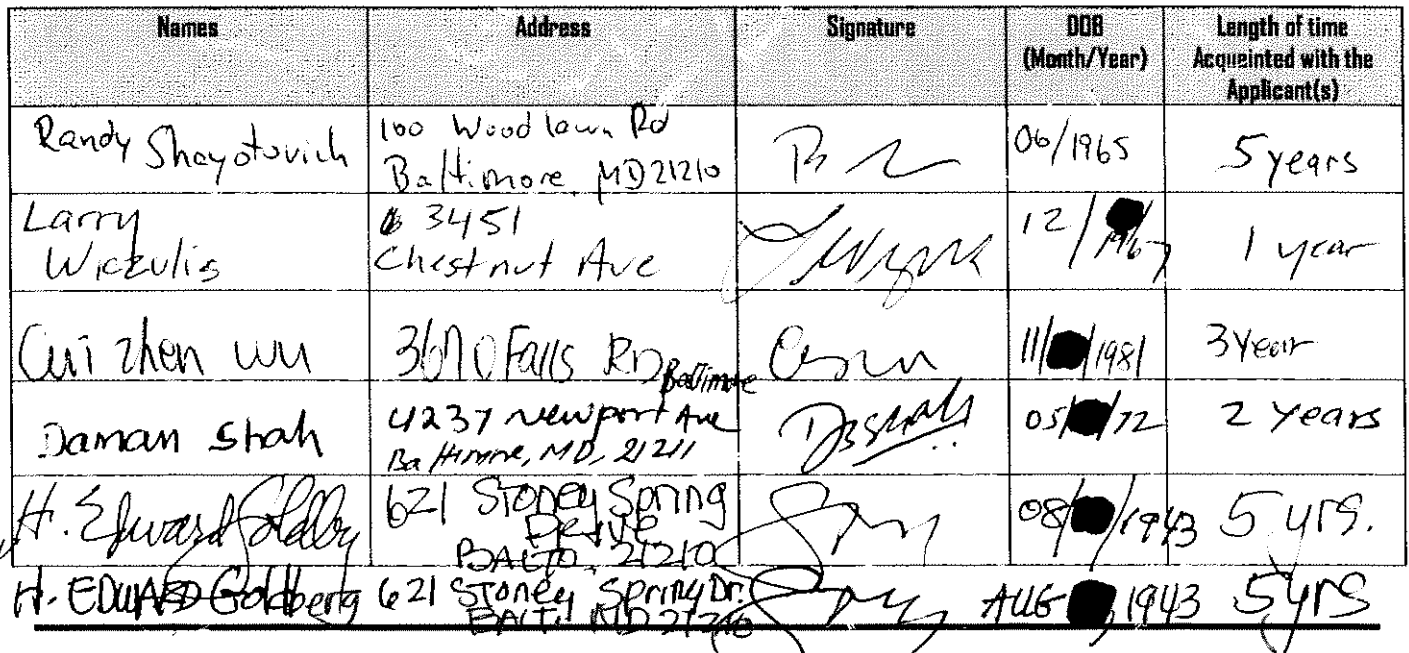 Names Address Signature DOB (Month/Year) Length of time Acquainted with the Applicant(s)
Randy 100 Woodlawn Rd Baltimore, MD 21210 06/1965 5 years
Larry 3451 Chestnut Ave 12/ 1967 1 year
Cui zhen wu Falls RD Baltimore 11/ /1981 3 Year
Daman Shah 4237 Newport Ave Baltimore, MD, 21211 05/ /72 2 Years
H. Edward 621 Stoney Spring Drive BALTO. 21210 08/ /1943 5 yrs.
H. EDWARD Goldberg 621 Stoney Spring Dr. BALTO MD 21210 AUG , 1943 5 yrs